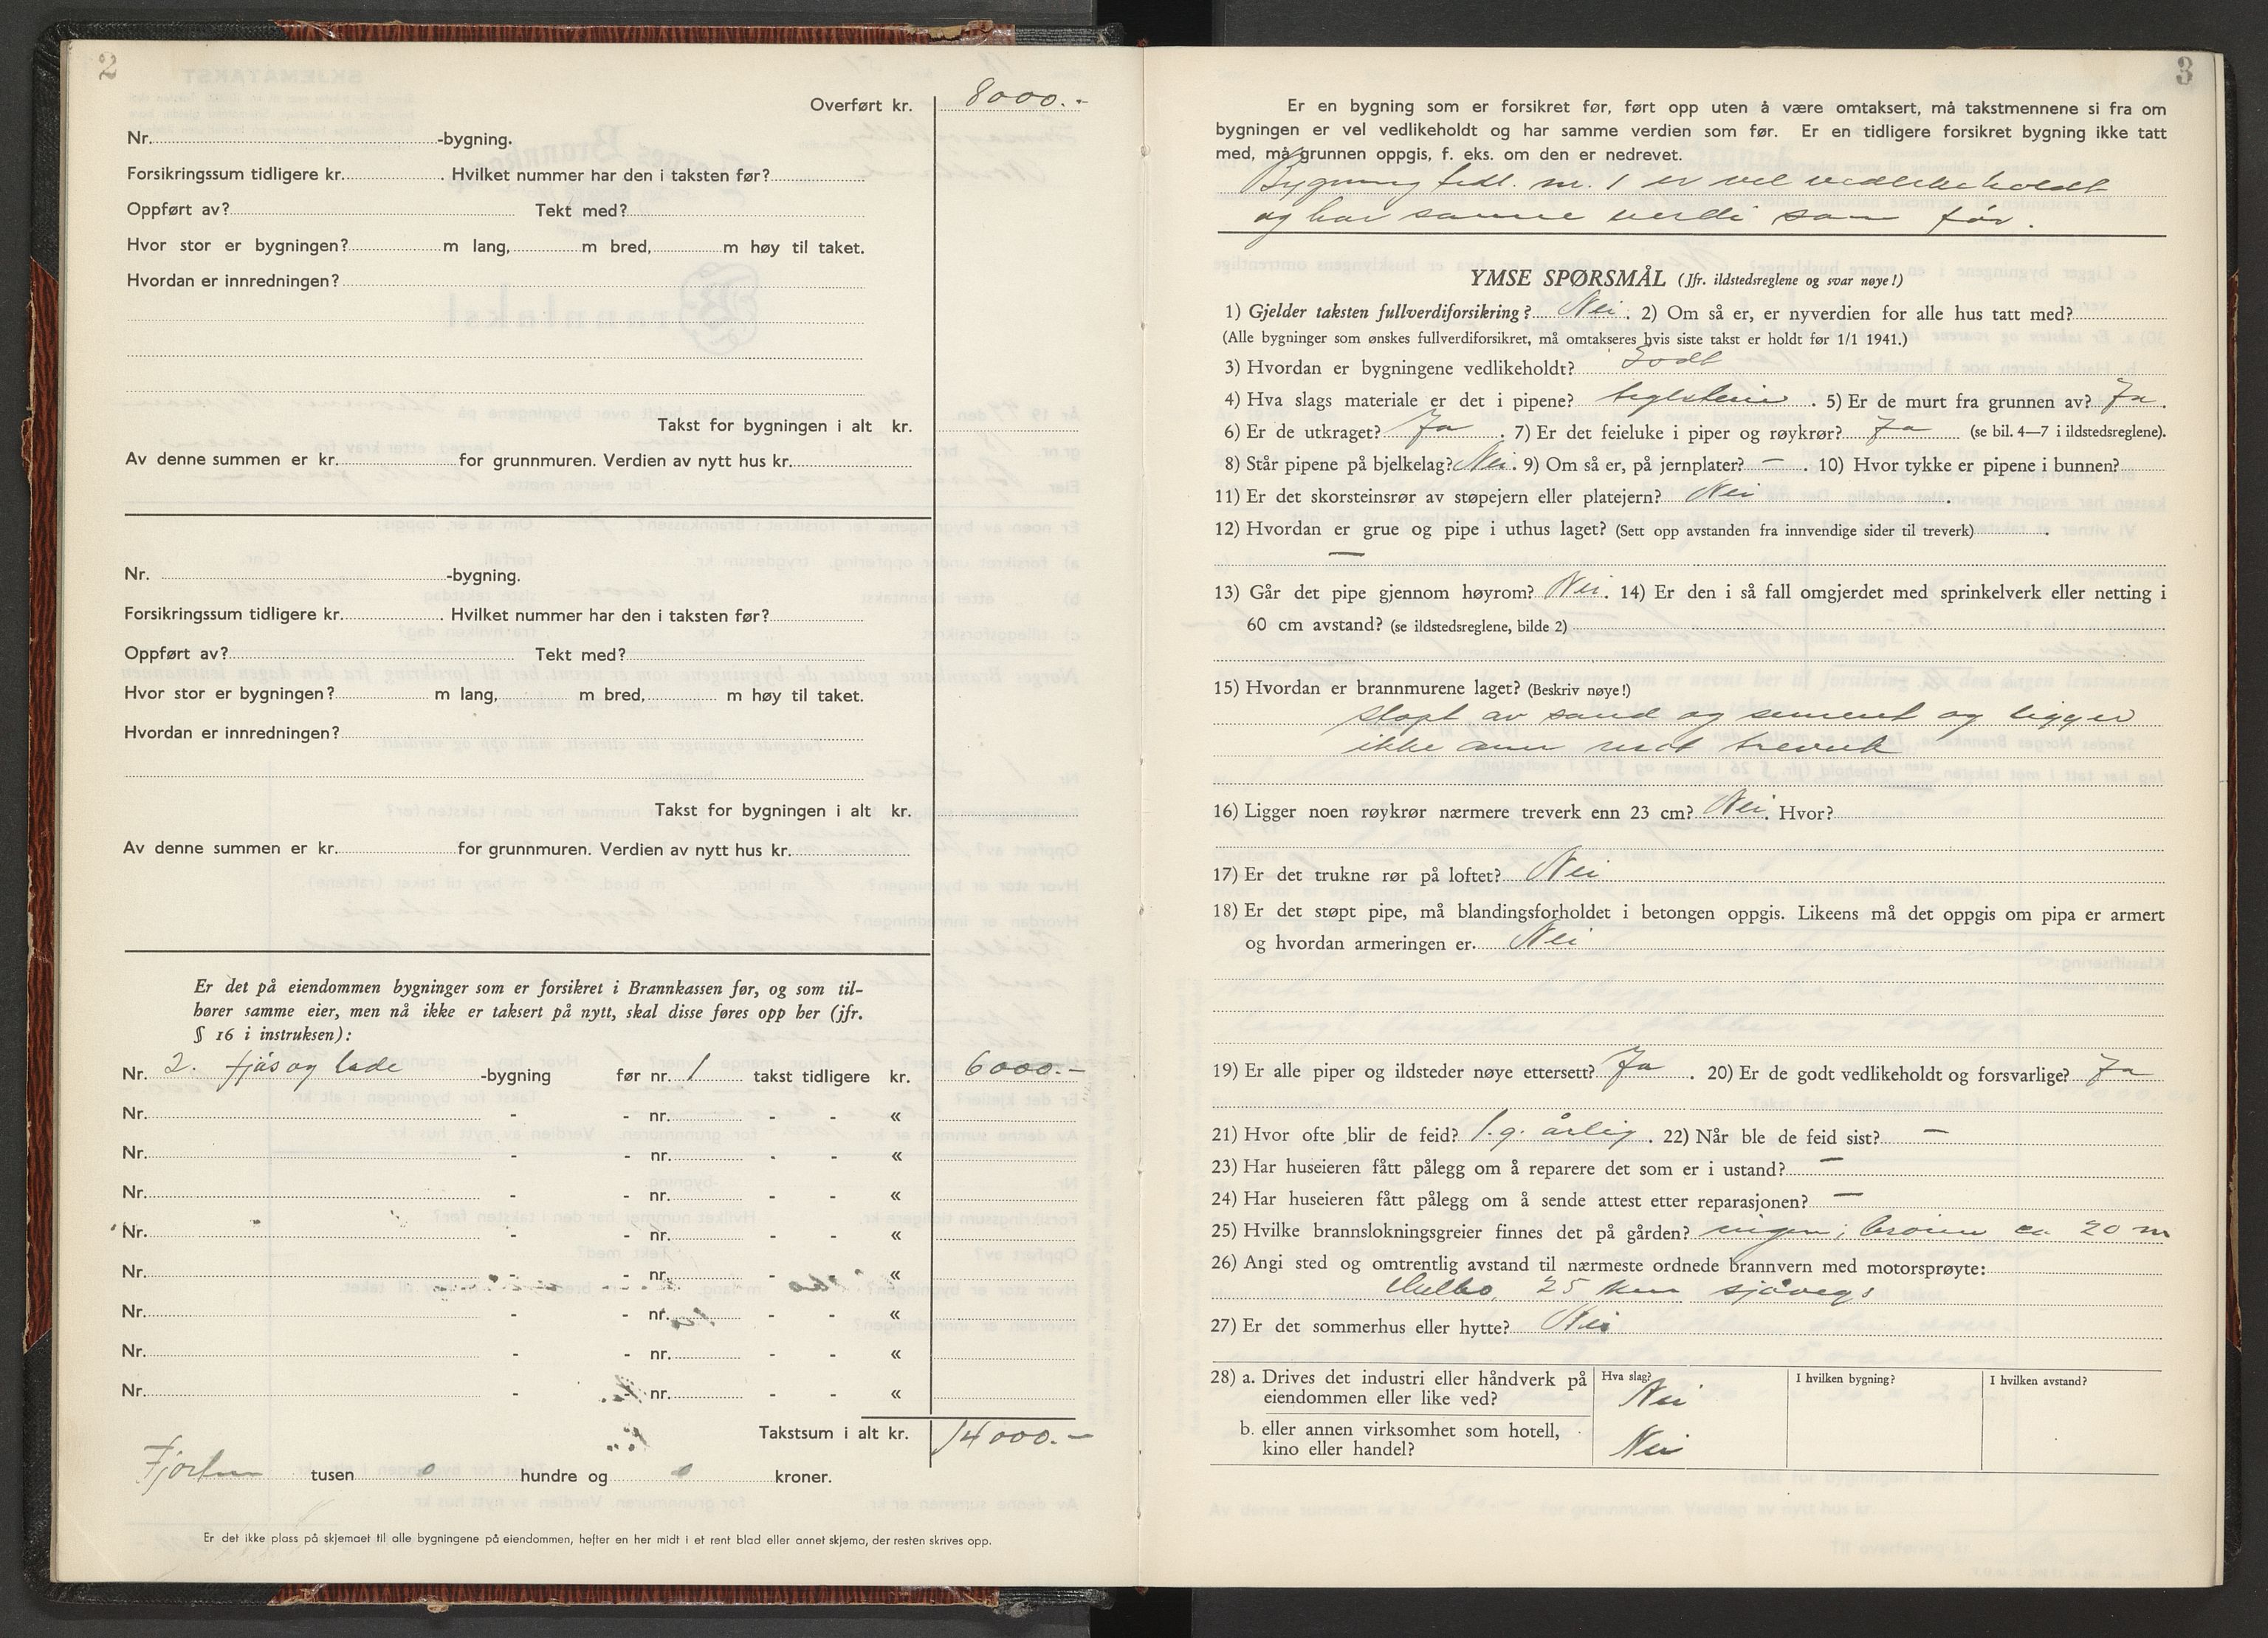 2
Overført kr. 8000.-
Nr. -bygning.
Forsikringssum tidligere kr. . Hvilket nummer har den i taksten før?
Oppført av? Tekt med?
Hvor stor er bygningen? m lang, m bred, m høy til taket.
Hvordan er innredningen?
Takst for bygningen i alt kr.
Av denne summen er kr. for grunnmuren. Verdien av nytt hus kr.
Nr. -bygning.
Forsikringssum tidligere kr. . Hvilket nummer har den i taksten før?
Oppført av? Tekt med?
Hvor stor er bygningen? m lang, m bred, m høy til taket.
Hvordan er innredningen?
Takst for bygningen i alt kr.
Av denne summen er kr. for grunnmuren. Verdien av nytt hus kr.
Er det på eiendommen bygninger som er forsikret i Brannkassen før, og som til-
hører samme eier, men nå ikke er taksert på nytt, skal disse føres opp her (jfr.
§ 16 i instruksen):
Nr. 2. fjøs og lade -bygning før nr. 1 takst tidligere kr. 6000.-
Nr. - - nr. - - «
Nr. - - nr. - - «
Nr. - - nr. - - «
Nr. - - nr. - - «
Nr. - - nr. - - «
Nr. - - nr. - - «
Nr. - - nr. - - «
Nr. - - nr. - - «
Takstsum i alt kr. 14000.-
Fjorten tusen 0 hundre og 0 kroner.
Er det ikke plass på skjemaet til alle bygningene på eiendommen, hefter en her midt i et rent blad eller annet skjema, der resten skrives opp.
3
Er en bygning som er forsikret før, ført opp uten å være omtaksert, må takstmennene si fra om
bygningen er vel vedlikeholdt og har samme verdien som før. Er en tidligere forsikret bygning ikke tatt
med, må grunnen oppgis, f. eks. om den er nedrevet.
Bygning tidl. nr. 1 er vel vedlikeholdt
og har samme verdi som før.
YMSE SPØRSMÅL (Jfr. ildstedsreglene og svar nøye!)
1) Gjelder taksten fullverdiforsikring? Nei. 2) Om så er, er nyverdien for alle hus tatt med?
(Alle bygninger som ønskes fullverdiforsikret, må omtakseres hvis siste takst er holdt før 1/1 1941.)
3) Hvordan er bygningene vedlikeholdt? Godt
4) Hva slags materiale er det i pipene? teglstein. 5) Er de murt fra grunnen av? Ja.
6) Er de utkraget? Ja. 7) Er det feieluke i piper og røykrør? Ja (se bil. 4—7 i ildstedsreglene).
8) Står pipene på bjelkelag? Nei. 9) Om så er, på jernplater? - . 10) Hvor tykke er pipene i bunnen?
11) Er det skorsteinsrør av støpejern eller platejern? Nei.
12) Hvordan er grue og pipe i uthus laget? (Sett opp avstanden fra innvendige sider til treverk) .
—
13) Går det pipe gjennom høyrom? Nei. 14) Er den i så fall omgjerdet med sprinkelverk eller netting i
60 cm avstand? (se ildstedsreglene, bilde 2)
15) Hvordan er brannmurene laget? (Beskriv nøye!)
støpt av sand og sement og ligger
ikke an mot treverk
16) Ligger noen røykrør nærmere treverk enn 23 cm? Nei. Hvor?
17) Er det trukne rør på loftet? Nei
18) Er det støpt pipe, må blandingsforholdet i betongen oppgis. Likeens må det oppgis om pipa er armert
og hvordan armeringen er. Nei
19) Er alle piper og ildsteder nøye ettersett? Ja. 20) Er de godt vedlikeholdt og forsvarlige? Ja
21) Hvor ofte blir de feid? 1.g. årlig. 22) Når ble de feid sist? —
23) Har huseieren fått pålegg om å reparere det som er i ustand? —
24) Har huseieren fått pålegg om å sende attest etter reparasjonen? —
25) Hvilke brannslokningsgreier finnes det på gården? ingen; brønn ca. 20 m
26) Angi sted og omtrentlig avstand til nærmeste ordnede brannvern med motorsprøyte:
Melbo, 25 km sjøvegs
27) Er det sommerhus eller hytte? Nei
28) a. Drives det industri eller håndverk på Hva slag? I hvilken bygning? I hvilken avstand?
eiendommen eller like ved? Nei
b. eller annen virksomhet som hotell,
kino eller handel? Nei